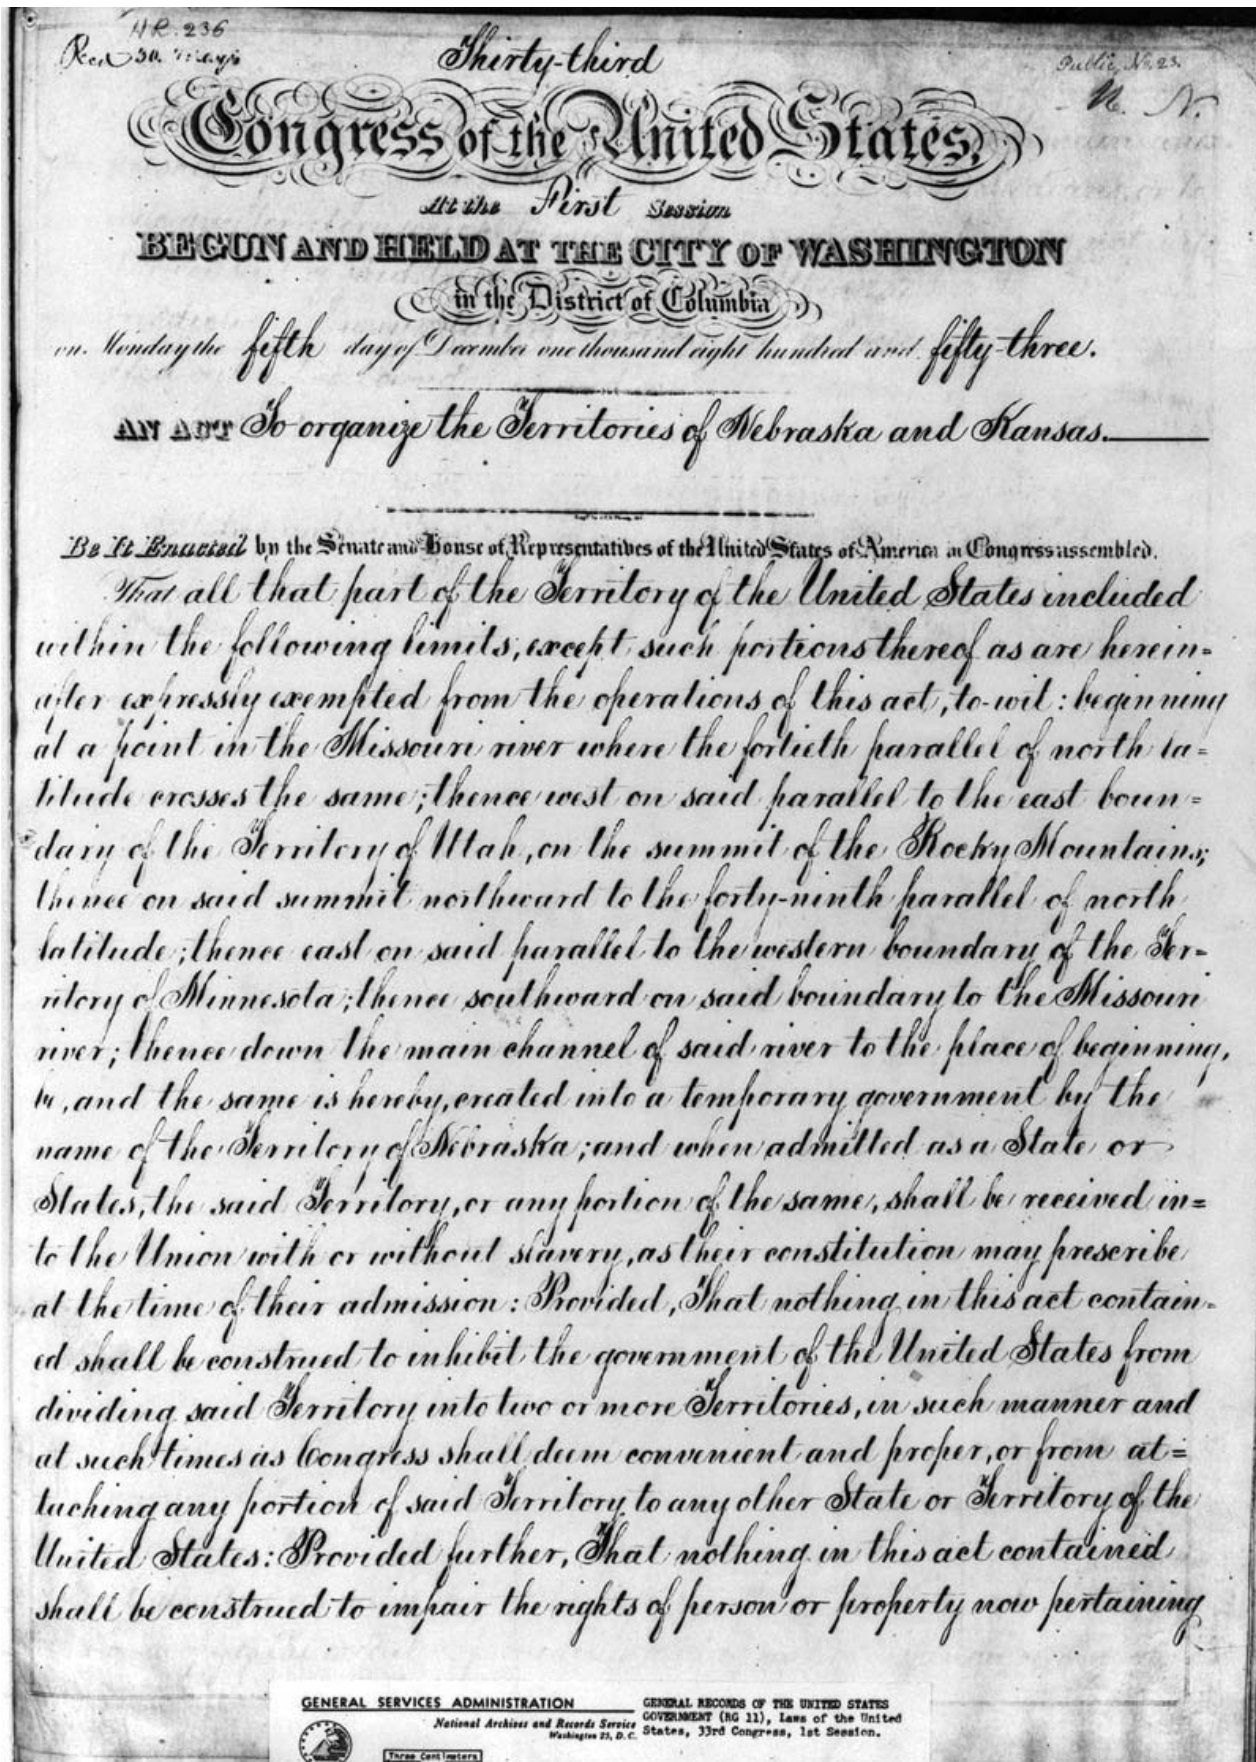 H.R. 236
Public, No. 23.
Recd 30. May
Thirty-third
N. N.
Congress of the United States,
At the First Session
BEGUN AND HELD AT THE CITY OF WASHINGTON
in the District of Columbia
on Monday the fifth day of December one thousand eight hundred and fifty-three.
AN ACT To organize the Territories of Nebraska and Kansas.
Be It Enacted by the Senate and House of Representatives of the United States of America in Congress assembled.
That all that part of the Territory of the United States included
within the following limits, except such portions thereof as are herein=
after expressly exempted from the operations of this act, to-wit: beginning
at a point in the Missouri river where the fortieth parallel of north la=
titude crosses the same; thence west on said parallel to the east boun=
dary of the Territory of Utah, on the summit of the Rocky Mountains;
thence on said summit northward to the forty-ninth parallel of north
latitude; thence east on said parallel to the western boundary of the Ter=
ritory of Minnesota; thence southward on said boundary to the Missouri
river; thence down the main channel of said river to the place of beginning,
be, and the same is hereby, created into a temporary government by the
name of the Territory of Nebraska; and when admitted as a State or
States, the said Territory, or any portion of the same, shall be received in=
to the Union with or without slavery, as their constitution may prescribe
at the time of their admission: Provided, That nothing in this act contain=
ed shall be construed to inhibit the government of the United States from
dividing said Territory into two or more Territories, in such manner and
at such times as Congress shall deem convenient and proper, or from at=
taching any portion of said Territory to any other State or Territory of the
United States: Provided further, That nothing in this act contained
shall be construed to impair the rights of person or property now pertaining
GENERAL SERVICES ADMINISTRATION
National Archives and Records Service
Washington 25, D.C.
Three Centimeters
GENERAL RECORDS OF THE UNITED STATES
GOVERNMENT (RG 11), Laws of the United
States, 33rd Congress, 1st Session.